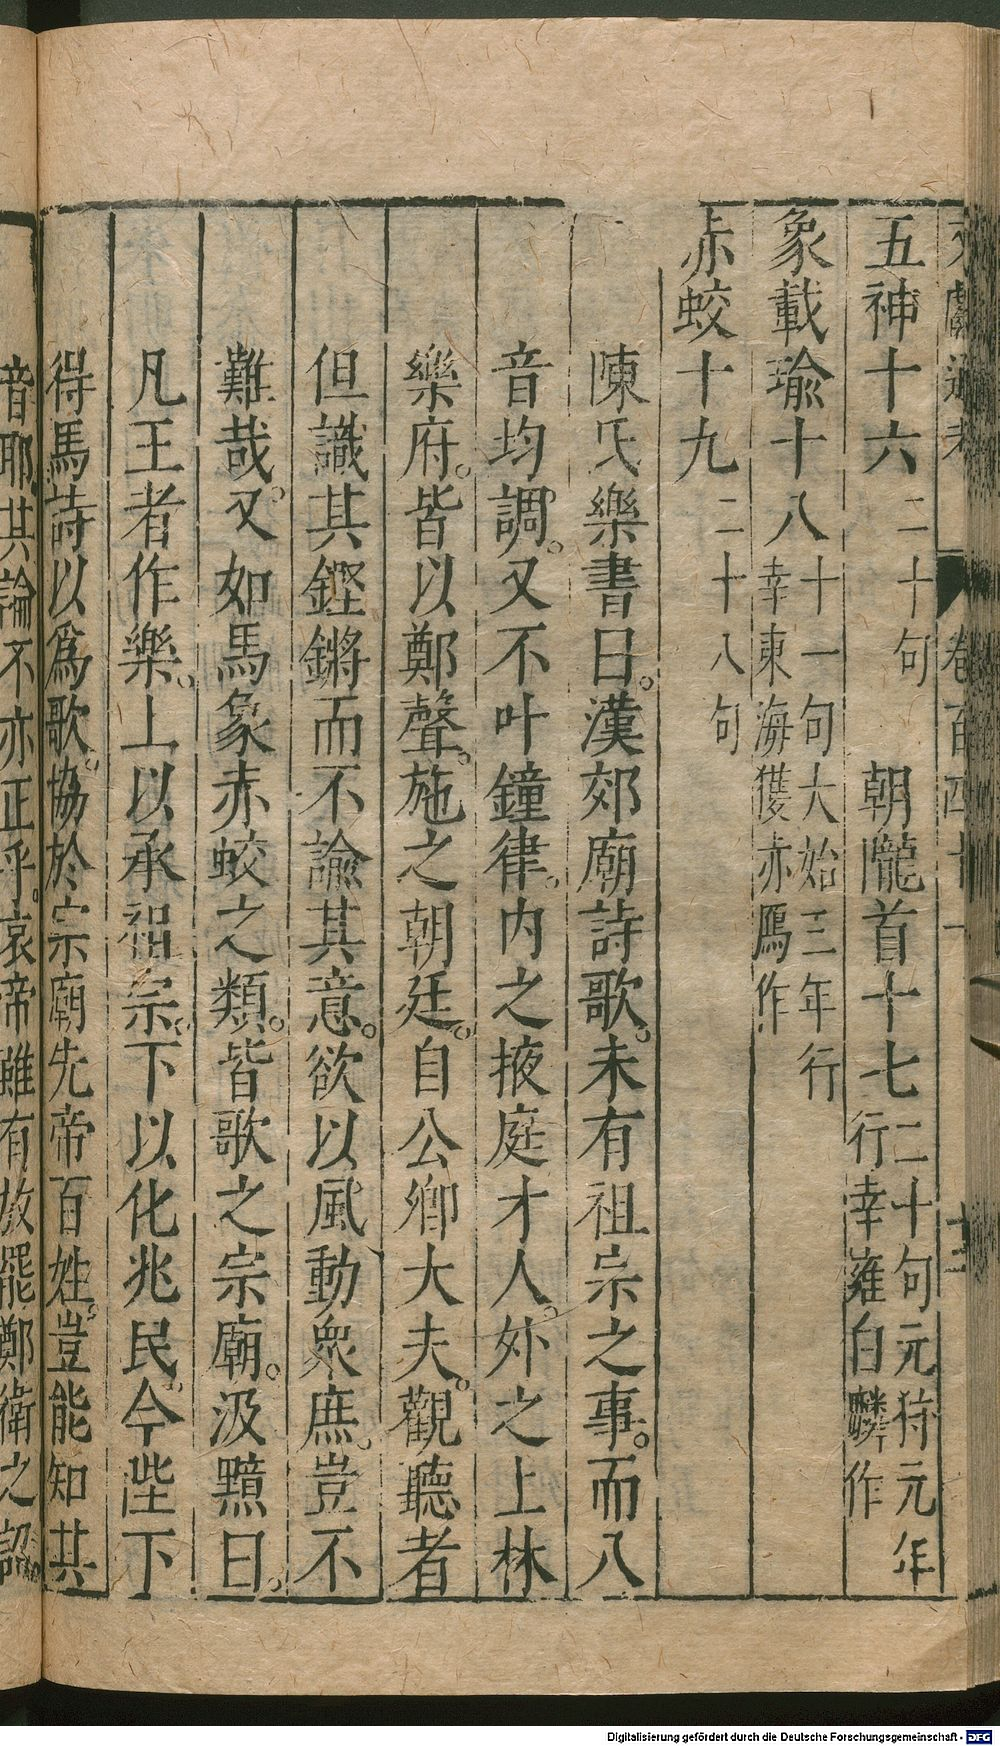 文獻通考 卷百四十一 十三
五神十六 二十句 朝隴首十七 二十句元狩元年行幸雍白麟作
象載瑜十八 十一句大始三年行幸東海獲赤鴈作
赤蛟十九 二十八句
陳氏樂書曰漢郊廟詩歌未有祖宗之事而八
音均調又不叶鐘律内之掖庭才人外之上林
樂府皆以鄭聲施之朝廷自公卿大夫觀聽者
但識其鏗鏘而不諭其意欲以風動衆庶豈不
難哉又如馬象赤蛟之類皆歌之宗廟汲黯曰
凡王者作樂上以承祖宗下以化兆民今陛下
得馬詩以爲歌協於宗廟先帝百姓豈能知其
音耶其論不亦正乎哀帝雖有放罷鄭衛之詔
Digitalisierung gefördert durch die Deutsche Forschungsgemeinschaft - DFG